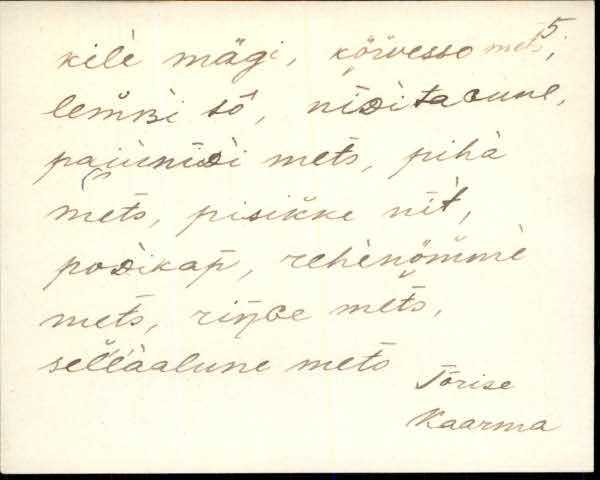 5
kilè mägi, körvesso mets,
lem̆ʙi sô, nīᴅitacune,
mets, pihà
mets, pisik̆ke nīt̀,
poᴅikap, rehenöm̆mè
mets, riŋɢe mets,
sel̆làalune mets
Tõrise
Kaarma